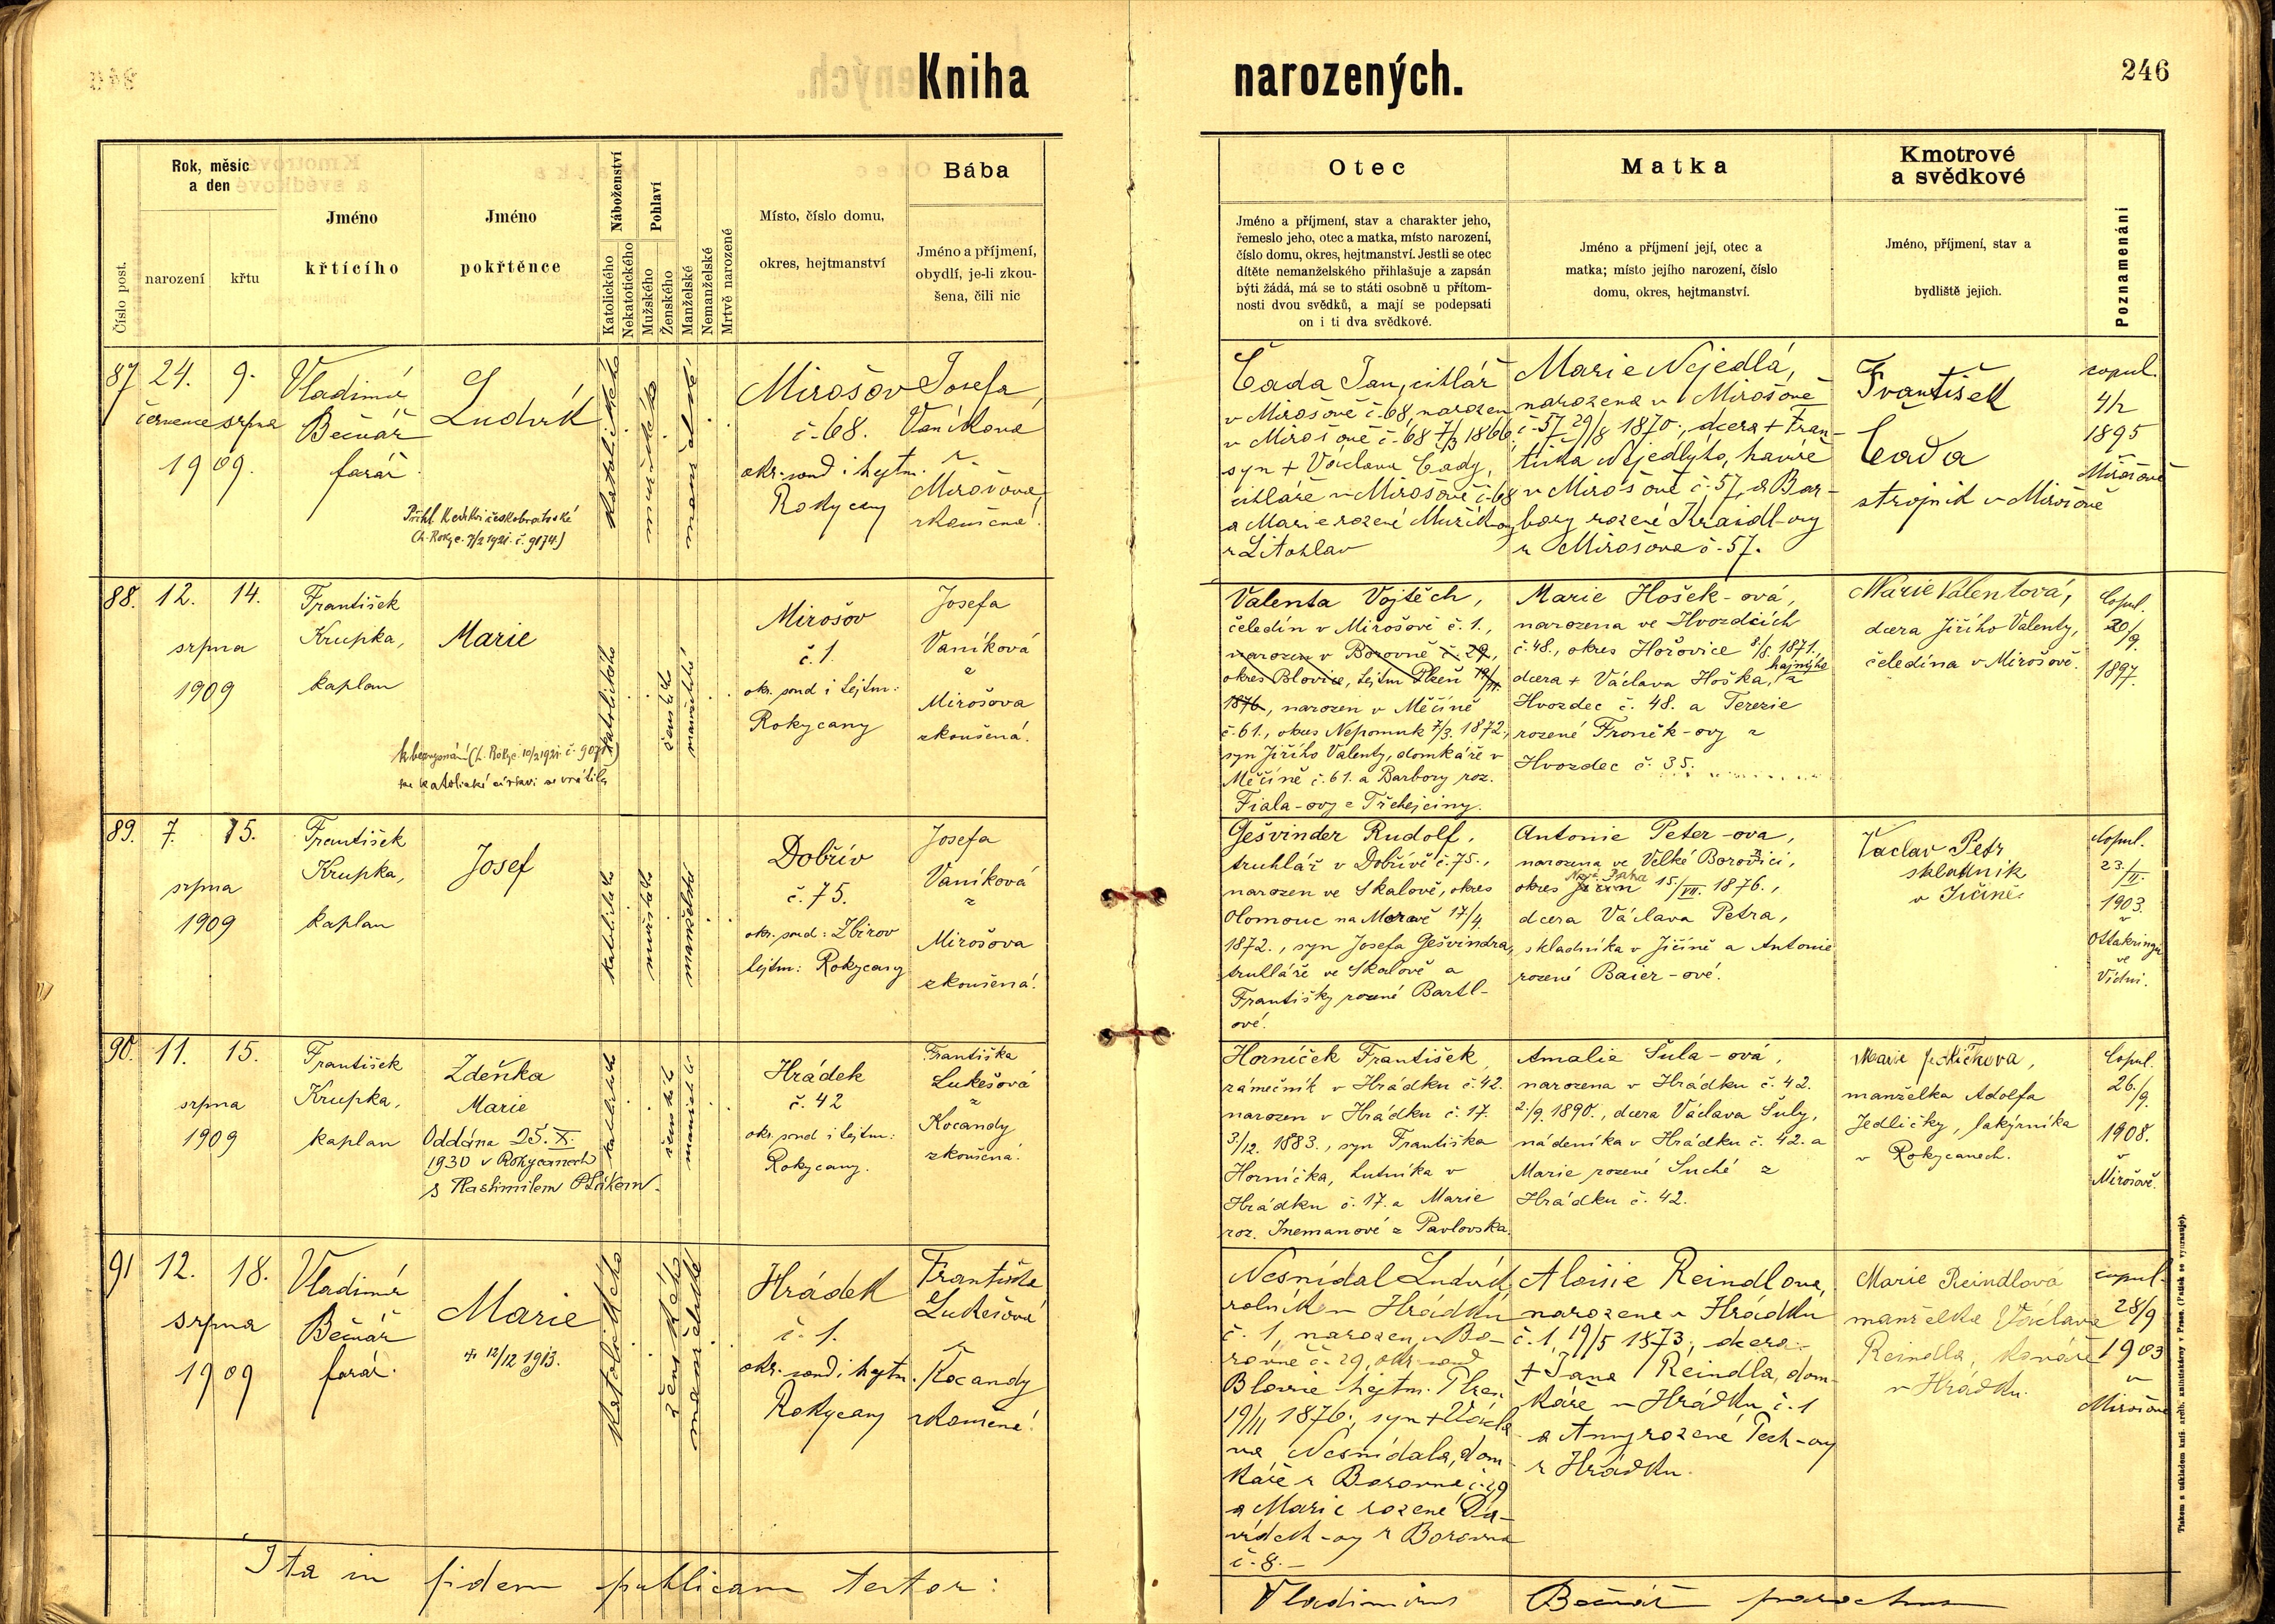 Kniha narozených.
246
Číslo post.
Rok, měsíc
a den
narození
křtu
Jméno
křtícího
Jméno
pokřtěnce
Náboženství
Katolického
Nekatolického
Pohlaví
Mužského
Ženského
Manželské
Nemanželské
Mrtvě narozené
Místo, číslo domu,
okres, hejtmanství
Bába
Jméno a příjmení,
obydlí, je-li zkou-
šena, čili nic
Otec
Jméno a příjmení, stav a charakter jeho,
řemeslo jeho, otec a matka, místo narození,
číslo domu, okres, hejtmanství. Jestli se otec
dítěte nemanželského přihlašuje a zapsán
býti žádá, má se to státi osobně u přítom-
nosti dvou svědků, a mají se podepsati
on i ti dva svědkové.
Matka
Jméno a příjmení její, otec a
matka; místo jejího narození, číslo
domu, okres, hejtmanství.
Kmotrové
a svědkové
Jméno, příjmení, stav a
bydliště jejich.
Poznamenání
87
24.
července
9.
srpna
1909.
Vladimír
Bečvář
farář.
Ludvík
katolického
mužského
manželské
Mirošov
č. 68.
okr. soud i hejtm.
Rokycany
Josefa
Vaníková
z
Mirošova,
zkoušená!
Čada Jan, cihlář
v Mirošově č. 68, narozen
v Mirošově č. 68 7/3 1866
syn + Václava Čady,
cihláře v Mirošově č. 68
a Marie rozené
z Litohlav
Marie Nejedlá,
narozena v Mirošově
č. 57 29/8 1870., dcera + Fran-
tiška Nejedlýho, havíře
v Mirošově č. 57, a Bar-
bory rozené Kraidl-ovy
z Mirošova č. 57.
František
Čada
strojník v Mirošově
copul.
4/2
1895
v
Mirošově
88.
12.
14.
srpna
1909
František
Krupka,
kaplan
Marie
k bezvyznání
ku katolické církvi se vrátila
katolického
ženského
manželské
Mirošov
č. 1.
okr. soud i hejtm:
Rokycany
Josefa
Vaníková
z
Mirošova
zkoušená!
Valenta Vojtěch,
čeledín v Mirošově č. 1.,
narozen v Borovně č. 29,
okres Blovice, hejtm Plzeň 19/11
1876, narozen v Měčíně
č. 61., okres Nepomuk 7/3. 1872,
syn Jiřího Valenty, domkáře v
Měčíně č. 61. a Barbory roz.
Fiala-ovy z
Marie Hošek-ová,
narozena ve Hvozdcích
č. 48., okres Hořovice 8/8. 1871,
dcera + Václava Hoška, hajného z
Hvozdec č. 48. a Terezie
rozené Froněk-ovy z
Hvozdec č. 35.
Marie Valentová,
dcera Jiřího Valenty,
čeledína v Mirošově.
Copul.
20/9.
1897.
89.
7.
15.
srpna
1909
František
Krupka,
kaplan
Josef
katolického
mužského
manželské
Dobřív
č. 75.
okr. soud: Zbirov
hejtm: Rokycany
Josefa
Vaníková
z
Mirošova
zkoušená!
Gešvinder Rudolf,
truhlář v Dobřívě č. 75.,
narozen ve Skalově, okres
Olomouc na Moravě 17/4.
1872., syn Josefa Gešvindra,
truhláře ve Skalově a
Františky rozené Bartl-
ové.
Antonie Peter-ova,
narozena ve Velké Borovici,
okres Jičín Nová Paka 15./VII. 1876.,
dcera Václava Petra,
skladníka v Jičíně a Antonie
rozené Baier-ové.
Václav Petr
skladník
v Jičíně.
Copul.
23./II.
1903.
v
Ottakringu
ve
Vídni.
90.
11.
15.
srpna
1909
František
Krupka,
kaplan
Zdeňka
Marie
Oddána 25. X.
1930 v Rokycanech
s Vlastimilem Ptákem.
katolického
ženského
manželské
Hrádek
č. 42
okr. soud i hejtm:
Rokycany.
Františka
Lukešová
z
Kocandy
zkoušená!
Horníček František,
zámečník v Hrádku č. 42.
narozen v Hrádku č. 17.
3/12. 1883., syn Františka
Horníčka, hutníka v
Hrádku č. 17. a Marie
roz. Inemanové z Pavlovska.
Amalie Šula-ová,
narozena v Hrádku č. 42.
2./9. 1890., dcera Václava Šuly,
nádeníka v Hrádku č. 42. a
Marie rozené Suché z
Hrádku č. 42.
Marie Jedličkova,
manželka Adolfa
Jedličky, lakýrníka
v Rokycanech.
Copul.
26./9.
1908.
v
Mirošově.
91
12.
18.
srpna
1909
Vladimír
Bečvář
farář.
Marie
+ 12/12 1913.
katolického
ženského
manželské
Hrádek
č. 1.
okr. soud i hejtm.
Rokycany
Františka
Lukešová
z
Kocandy
zkoušená!
Nesnídal Ludvík,
rolník v Hrádku
č. 1, narozen v Bo-
rovně č. 29, okr. soud
Blovice hejtm. Plzeň
19/11 1876., syn + Václa-
va Nesnídala, dom-
káře z Borovna č. 29
a Marie rozené
z Borovna
č. 8.-
Aloisie Reindlova,
narozena v Hrádku
č. 1, 19/5 1873, dcera
+ Jana Reindla, dom-
káře v Hrádku č. 1
a Anny rozené Tech-ovy
z Hrádku.
Marie Reindlová
manželka Václava
Reindla, kováře
v Hrádku.
copul.
28/9
1903
v
Mirošově
Ita in fidem publicam testor:
Vladimirus Bečvář parochus